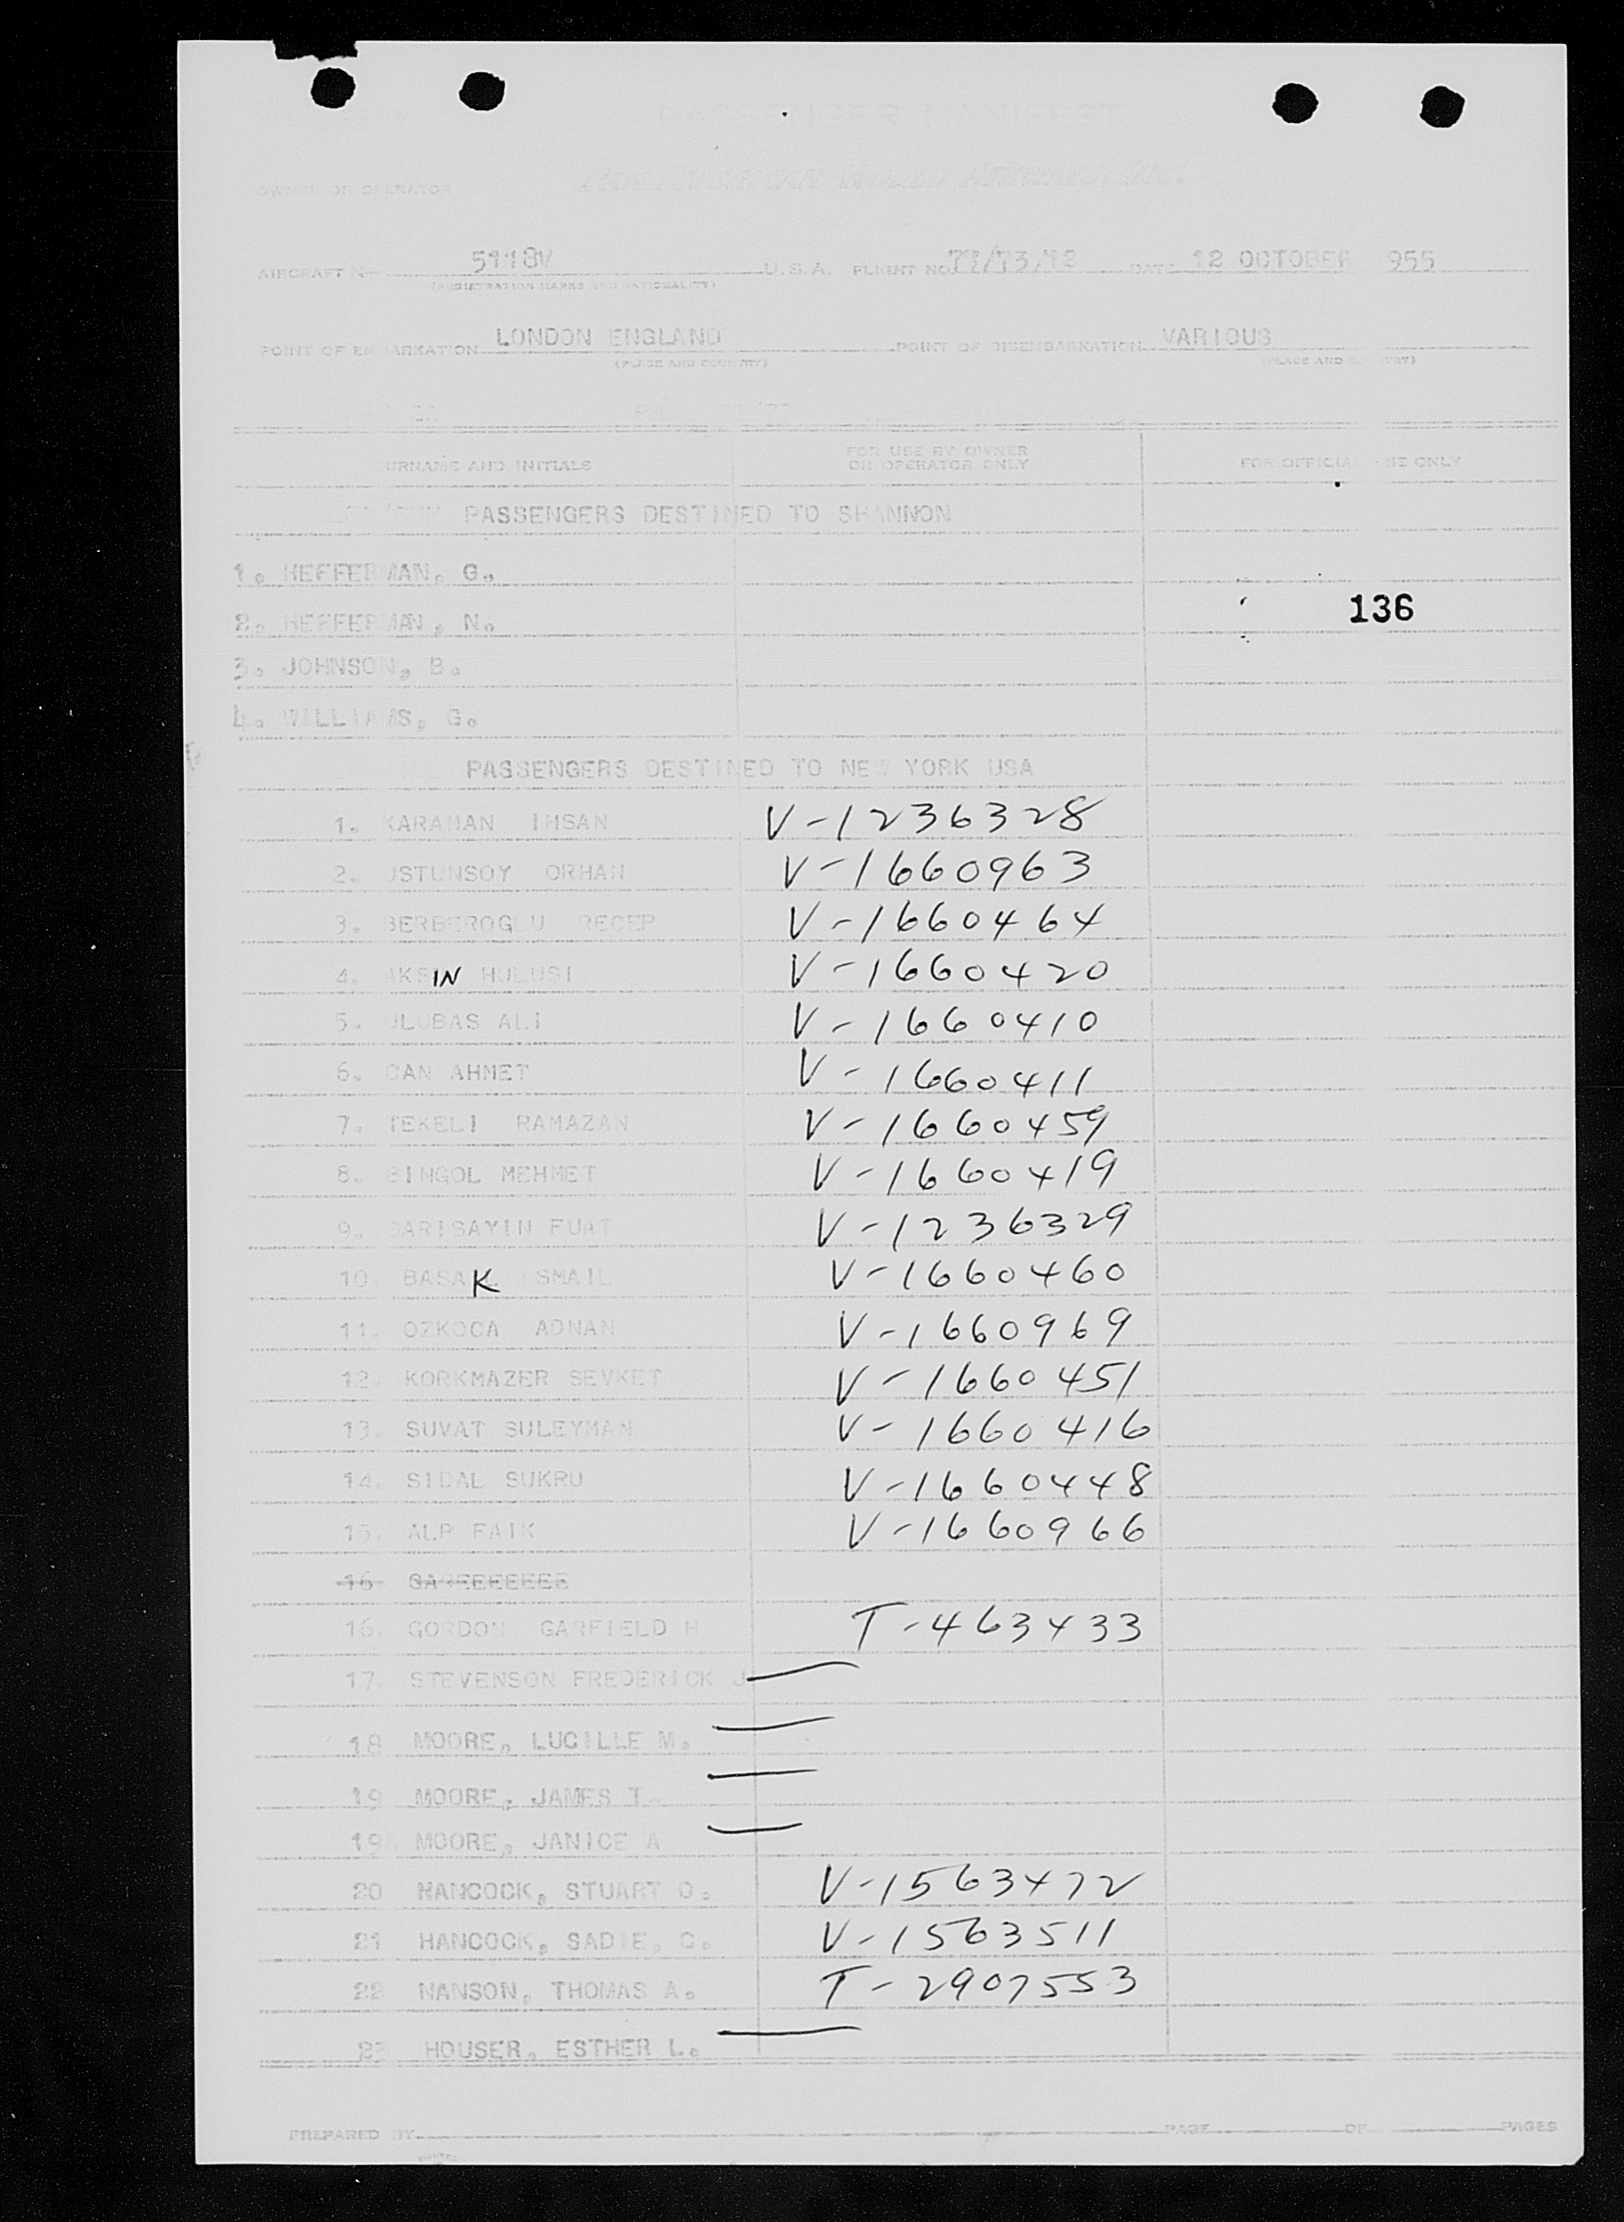 PASSENGER MANIFEST
OWNER OR OPERATOR
AIRCRAFT No 5118V U.S.A. FLIGHT NO 71/73/12 DATE 12 OCTOBER 955
(REGISTRATION MARKS AND NATIONALITY)
POINT OF EMBARKATION LONDON ENGLAND POINT OF DISEMBARKATION VARIOUS
(PLACE AND COUNTRY) (PLACE AND COUNTRY)
SURNAME AND INITIALS FOR USE BY OWNER OR OPERATOR ONLY FOR OFFICIAL USE ONLY
PASSENGERS DESTINED TO SHANNON
1. HEFFERMAN, G.
2. HEFFERMAN, N. 136
3. JOHNSON, B.
4. WILLIAMS, G.
PASSENGERS DESTINED TO NEW YORK USA
1. KARAMAN IHSAN V-1236328
2. USTUNSOY ORHAN V-1660963
3. BERBEROGLU RECEP V-1660464
4. AKSIN HULUSI V-1660420
5. ULUBAS ALI V-1660410
6. CAN AHMET V-1660411
7. TEKELI RAMAZAN V-1660459
8. BINGOL MEHMET V-1660419
9. SARISAYIN FUAT V-1236329
10. BASAK ISMAIL V-1660460
11. OZKOCA ADNAN V-1660969
12. KORKMAZER SEVKET V-1660451
13. SUVAT SULEYMAN V-1660416
14. SIDAL SUKRU V-1660448
15. ALP FAIK V-1660966
16
16. GORDON GARFIELD H T-463433
17. STEVENSON FREDERICK J
18 MOORE, LUCILLE M.
19 MOORE, JAMES T.
19A MOORE, JANICE A
20 HANCOCK, STUART O. V-1563472
21 HANCOCK, SADIE, C. V-1563511
22 NANSON, THOMAS A. T-2907553
23 HOUSER, ESTHER L.
PREPARED BY PAGE OF PAGES